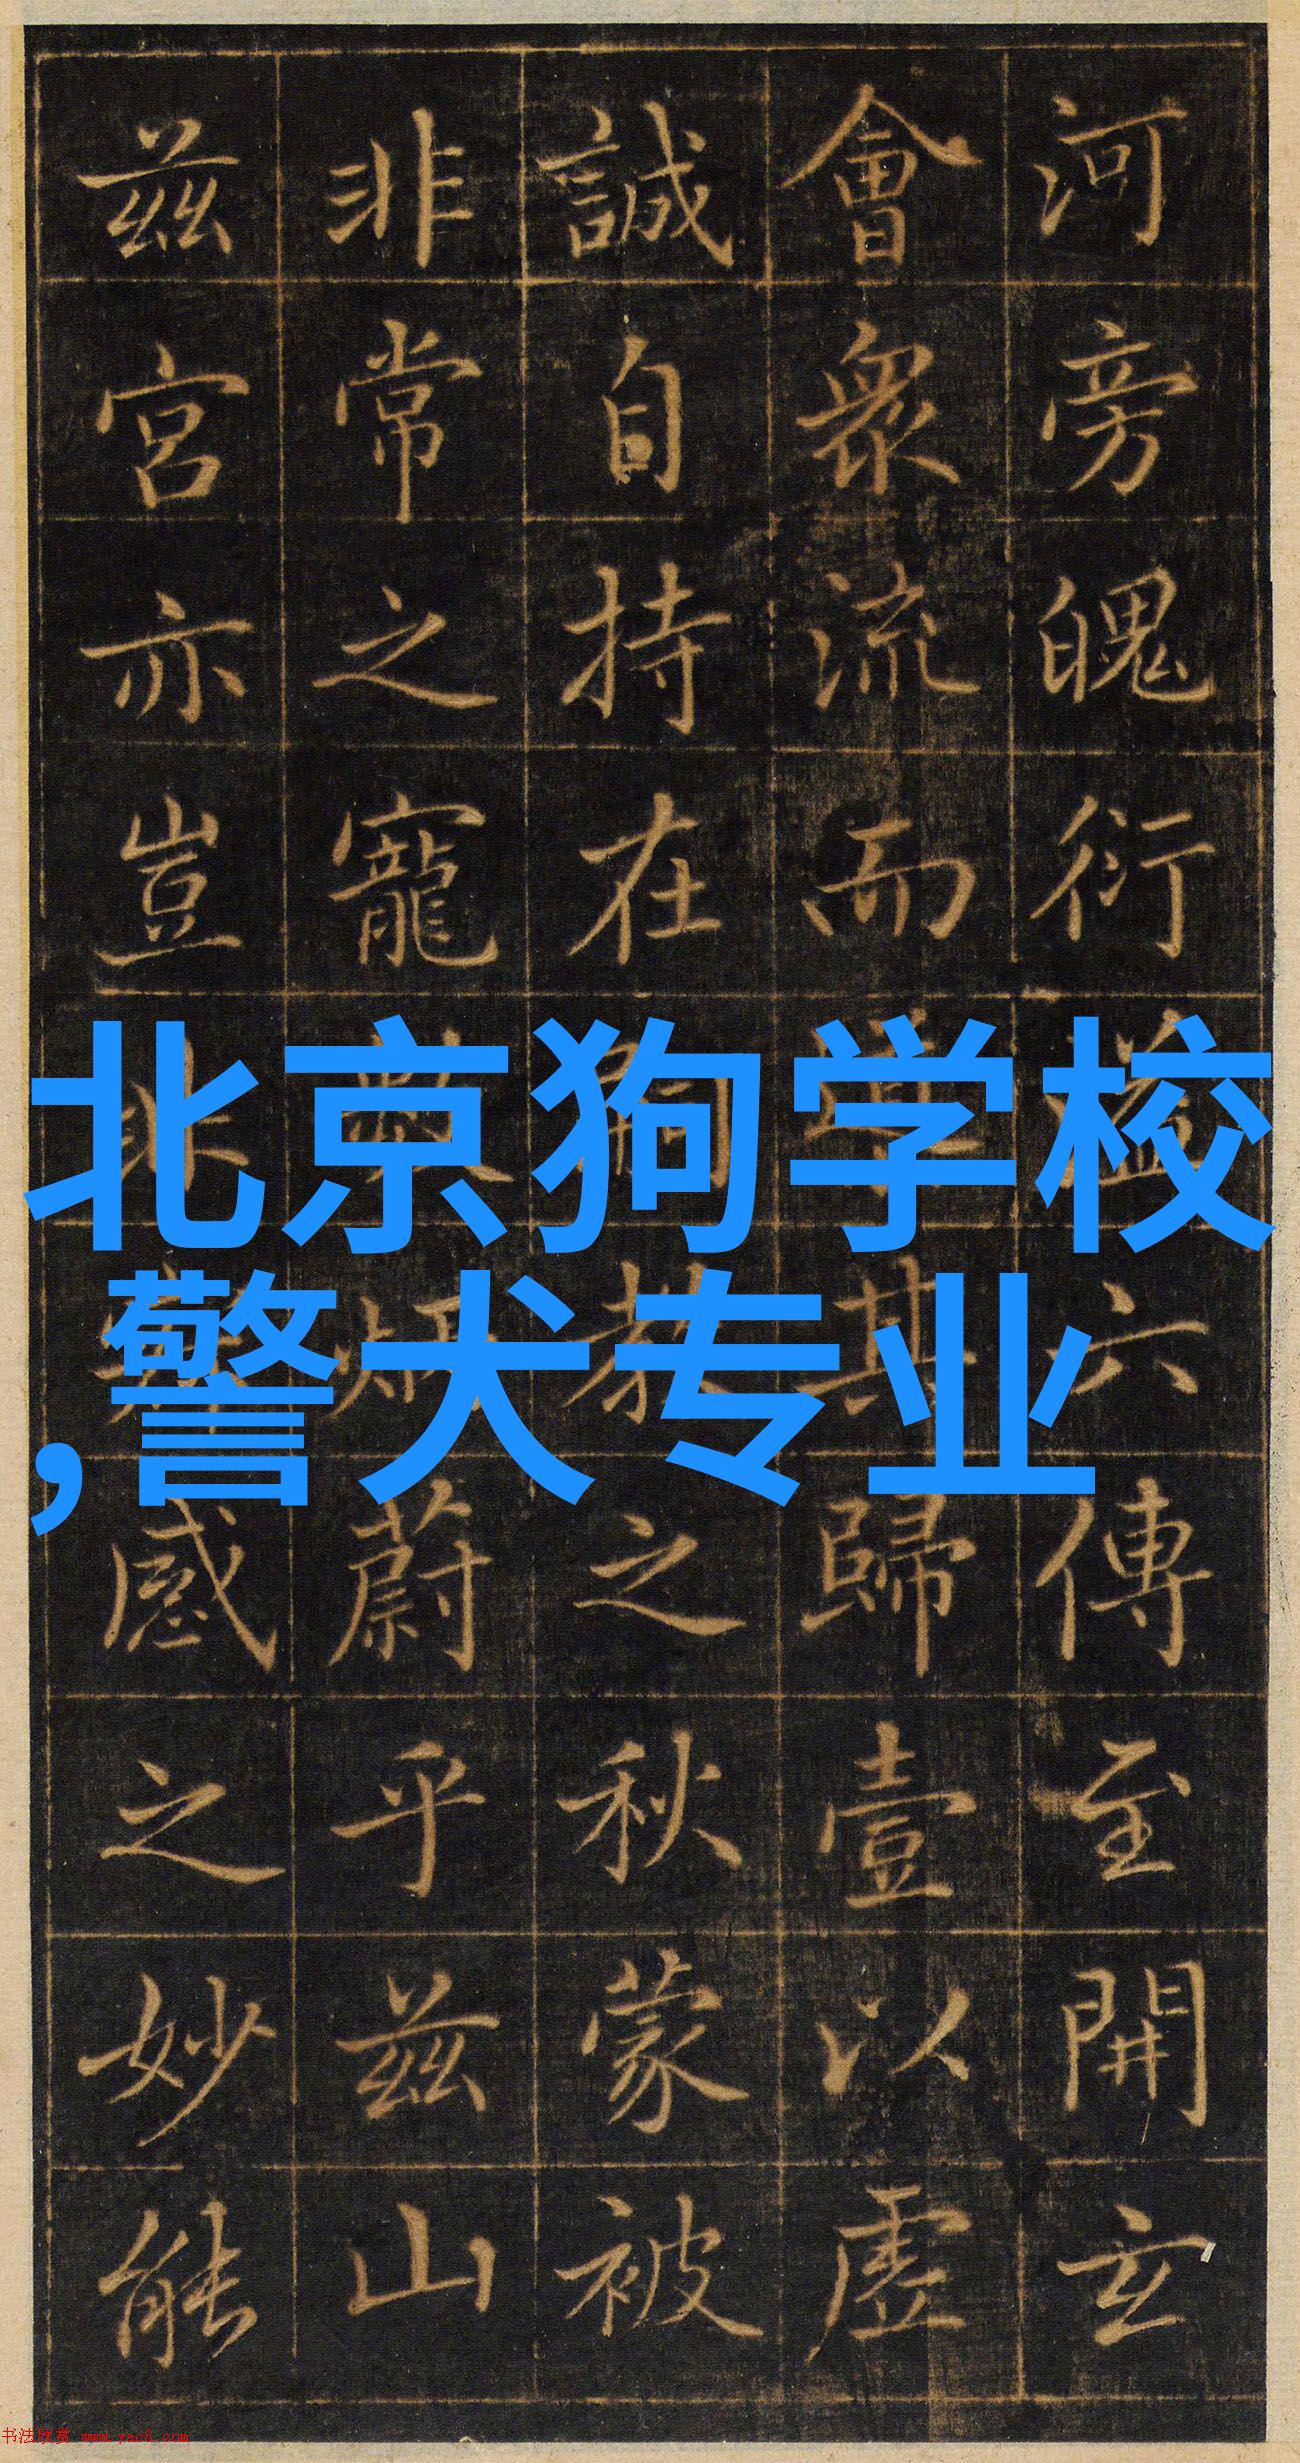 河旁魄衍溢六傳至開玄
會衆流而導其歸壹以虛
誠自持在嗣教之秋蒙被
非常之寵數炳蔚乎茲山
茲宮亦豈非感之妙能
北京狗学校
,警犬专业
书法欣赏 www.yac8.com